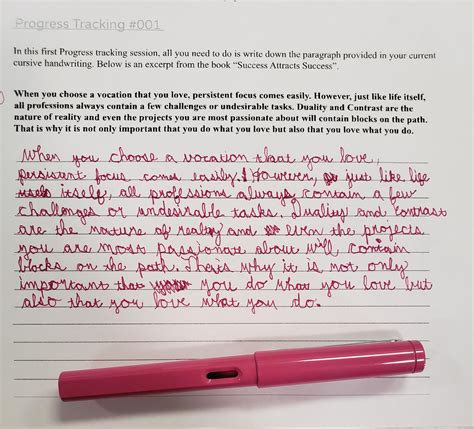 Progress Tracking #001
In this first Progress tracking session, all you need to do is write down the paragraph provided in your current
cursive handwriting. Below is an excerpt from the book “Success Attracts Success”.
When you choose a vocation that you love, persistent focus comes easily. However, just like life itself,
all professions always contain a few challenges or undesirable tasks. Duality and Contrast are the
nature of reality and even the projects you are most passionate about will contain blocks on the path.
That is why it is not only important that you do what you love but also that you love what you do.
When you choose a vocation that you love,
persistent focus comes easily. However, just like life
itself, all professions always contain a few
challenges or undesirable tasks. Duality and contrast
are the nature of reality and even the projects
you are most passionate about will contain
blocks on the path. Thats why it is not only
important that you do what you love but
also that you love what you do.